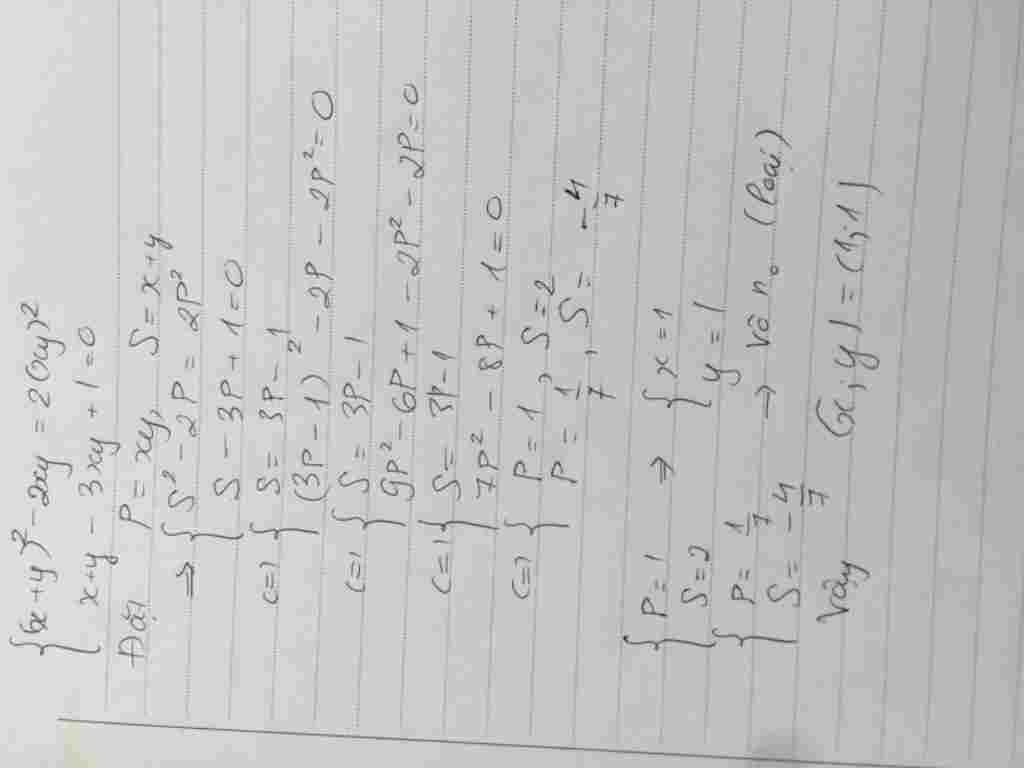 {(x+y)² - 2xy = 2(xy)²
x+y - 3xy + 1 = 0
Đặt P = xy, S = x+y
⇒ {S² - 2P = 2P²
S - 3P + 1 = 0
<=> {S = 3P - 1
(3P - 1)² - 2P - 2P² = 0
<=> {S = 3P - 1
9P² - 6P + 1 - 2P² - 2P = 0
<=> {S = 3P - 1
7P² - 8P + 1 = 0
<=> {P = 1, S = 2
P = 1/7, S = -4/7
{P = 1 ⇒ {x = 1
S = 2 y = 1
{P = 1/7 → Vô no (loại)
S = -4/7
Vậy (x; y) = (1; 1)